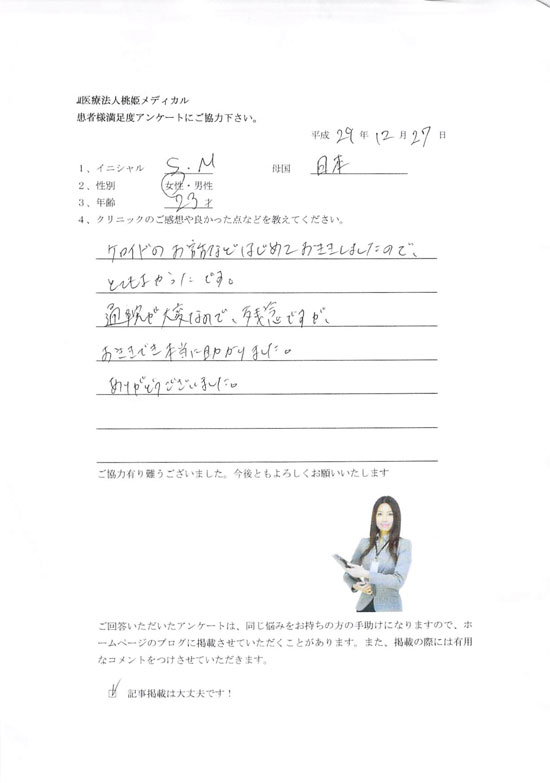 医療法人桃姫メディカル
患者様満足度アンケートにご協力下さい。
平成 29 年 12 月 27 日
1、イニシャル S.M 母国 日本
2、性別 女性・男性
3、年齢 23 才
4、クリニックのご感想や良かった点などを教えてください。
ケロイドのお話などはじめておききしましたので、
とてもよかったです。
通院が大変なので、残念ですが、
おききでき本当に助かりました。
ありがとうございました。
ご協力有り難うございました。今後ともよろしくお願いいたします
ご回答いただいたアンケートは、同じ悩みをお持ちの方の手助けになりますので、ホ
ームページのブログに掲載させていただくことがあります。また、掲載の際には有用
なコメントをつけさせていただきます。
☑ 記事掲載は大丈夫です！